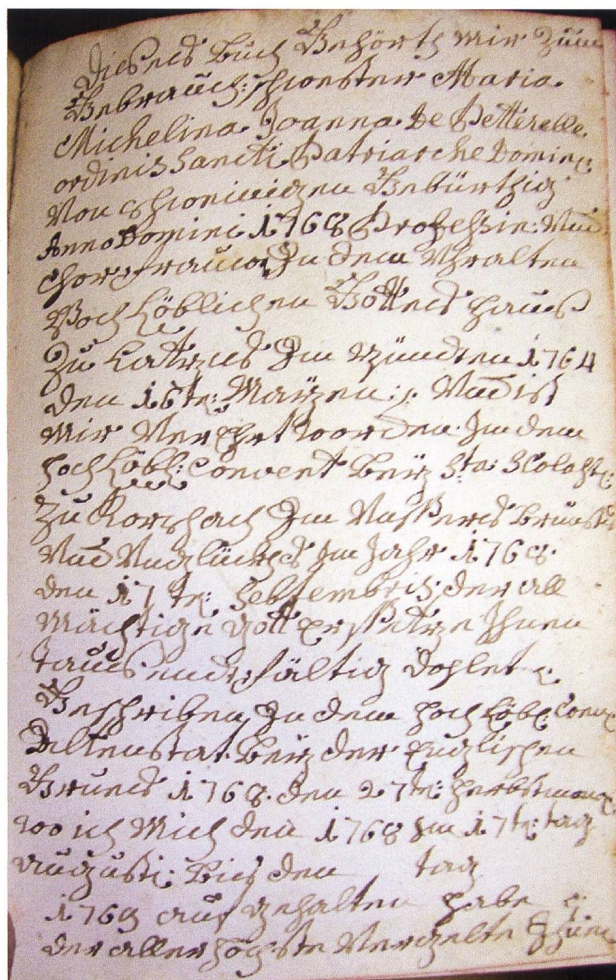 Dieses buch Gehörth mir zum
Gebrauch: schwester Maria
Michelina Joanna De Petterelle
ordinis Sancti Patriarche Dominic
Von Gebürthig
Anno Domini 1768 Professin: Und
Chorfrauw In dem Uhralten
Hoch Löblichen Gottes haus
Zu Catzis Im 1764
den 16te: Märzen: Und ist
mir Verehrt worden In dem
hoch Löbl: Convent beÿ Sta: Scolast:
Zu Rorschach Im
Und Unglückhs Im Jahr 1768
den 17te: Sebtembris: der all
Mächtige gott ersetze Ihnen
tausendtfältig doplet
Geschriben In dem hoch Löbl: Conv
Altenstat beÿ der Englischen
Gruess 1768 den 27te: herbstmon
wo ich mich den 1768 Im 17te: tag
augusti: bies den tag
1769 auf gehalten habe
der aller höchste Vergelte Ihnen